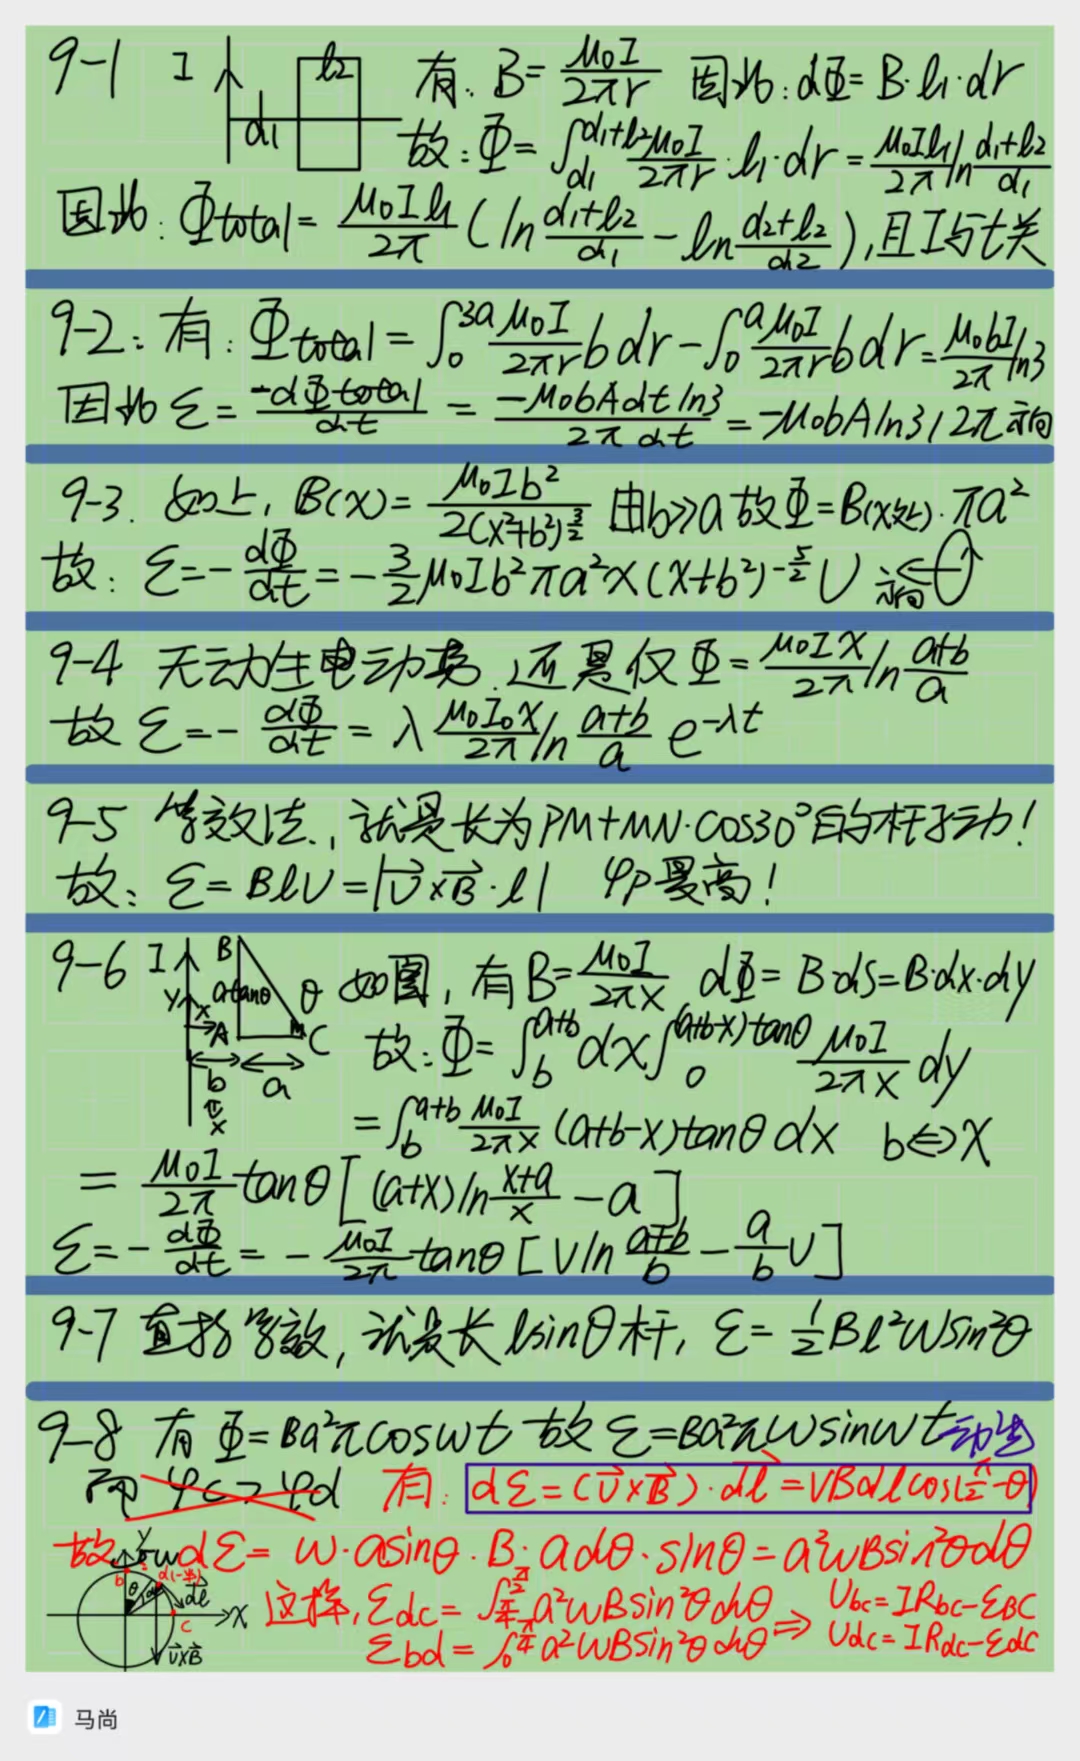 9-1 I d₁ l₂ 有: B=μ₀I/2πr 因此: dΦ=B·l₁·dr
故: Φ=∫_{d₁}^{d₁+l₂} μ₀I/2πr·l₁·dr=μ₀Il₁/2π ln (d₁+l₂)/d₁
因此: Φtotal=μ₀Il₁/2π (ln (d₁+l₂)/d₁ - ln (d₂+l₂)/d₂), 且I与t关
9-2: 有: Φtotal=∫₀^{3a} μ₀I/2πr b dr-∫₀^{a} μ₀I/2πr b dr=μ₀bI/2π ln3
因此 ε=-dΦtotal/dt=-μ₀bAdt ln3/2π dt=-μ₀bAln3/2π 方向
9-3. 如上, B(x)=μ₀Ib²/2(x²+b²)^{3/2} 由b≫a 故Φ=B(x处)·πa²
故: ε=-dΦ/dt=-3/2 μ₀Ib²πa²x(x+b²)^{-5/2}υ 方向
9-4 无动生电动势, 还是仅 Φ=μ₀Ix/2π ln (a+b)/a
故 ε=-dΦ/dt=λ μ₀I₀x/2π ln (a+b)/a e^{-λt}
9-5 等效法, 就是长为PM+MN·cos30°的杆子动!
故: ε=Blυ=|υ⃗×B⃗·l| φp最高!
9-6 I B y atanθ θ x A C b a x 如图, 有B=μ₀I/2πx dΦ=B·ds=B·dx·dy
故: Φ=∫_b^{a+b}dx∫₀^{(a+b-x)tanθ} μ₀I/2πx dy
=∫_b^{a+b} μ₀I/2πx (a+b-x)tanθ dx b⇔x
=μ₀I/2π tanθ[(a+x)ln (x+a)/x -a]
ε=-dΦ/dt=-μ₀I/2π tanθ[υln (a+b)/b - a/b υ]
9-7 直接等效, 就是长lsinθ杆, ε=½Bl²ωsin²θ
9-8 有 Φ=Ba²πcosωt 故 ε=Ba²πωsinωt 动生
而 φc>φd 有: dε=(υ⃗×B⃗)·dl⃗=υBdlcos(π/2-θ)
故 dε=ω·asinθ·B·adθ·sinθ=a²ωBsin²θdθ
y ω b θ dl⃗ c x υ⃗×B⃗ 这样, εdc=∫_{π/4}^{π/2}a²ωBsin²θdθ ⇒ Ubc=IRbc-εBC
εbd=∫₀^{π/4}a²ωBsin²θdθ Udc=IRdc-εdc
马尚